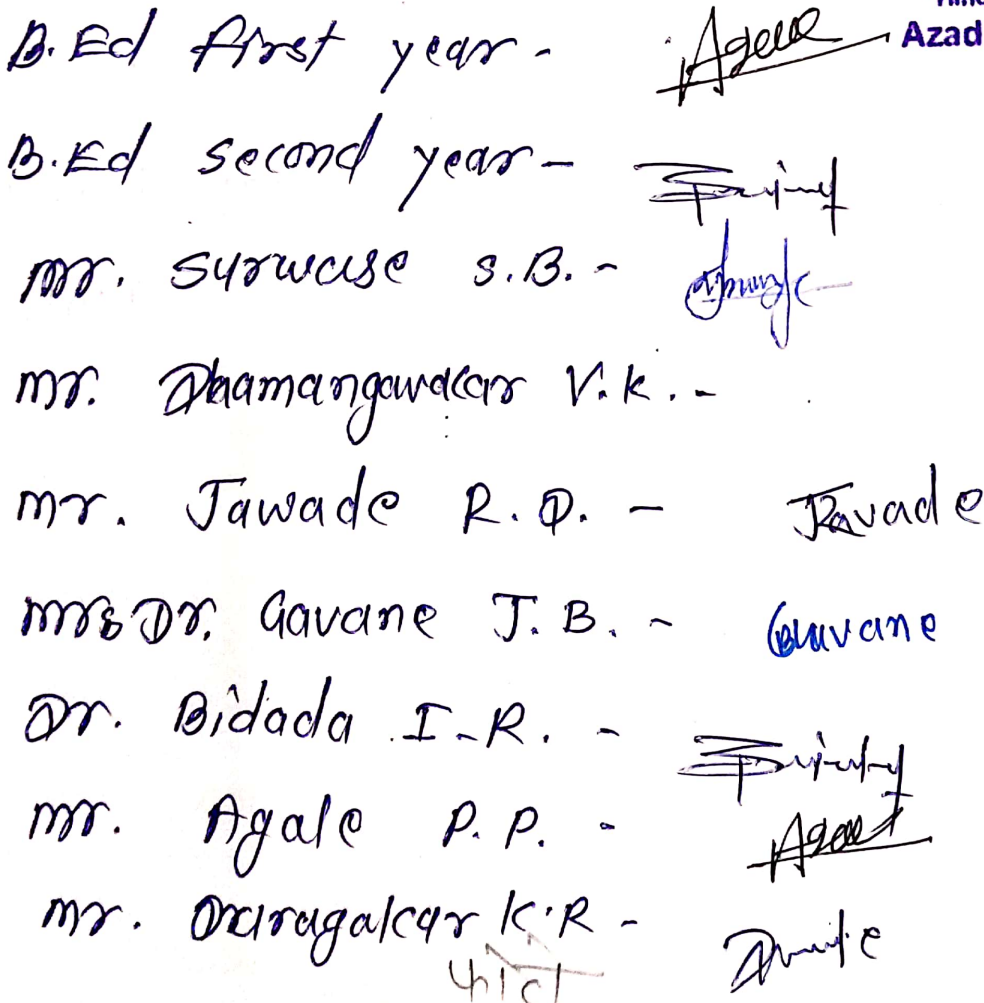 Azad
B.Ed first year - Agale
B.Ed second year -
mr. Surwase S.B. -
mr. Dhamangawakar V.K. -
mr. Jawade R.D. - Javade
mrs Dr. Gavane J.B. - Gavane
Dr. Bidada I.R. -
mr. Agale P.P. - Agale
mr. K.R -